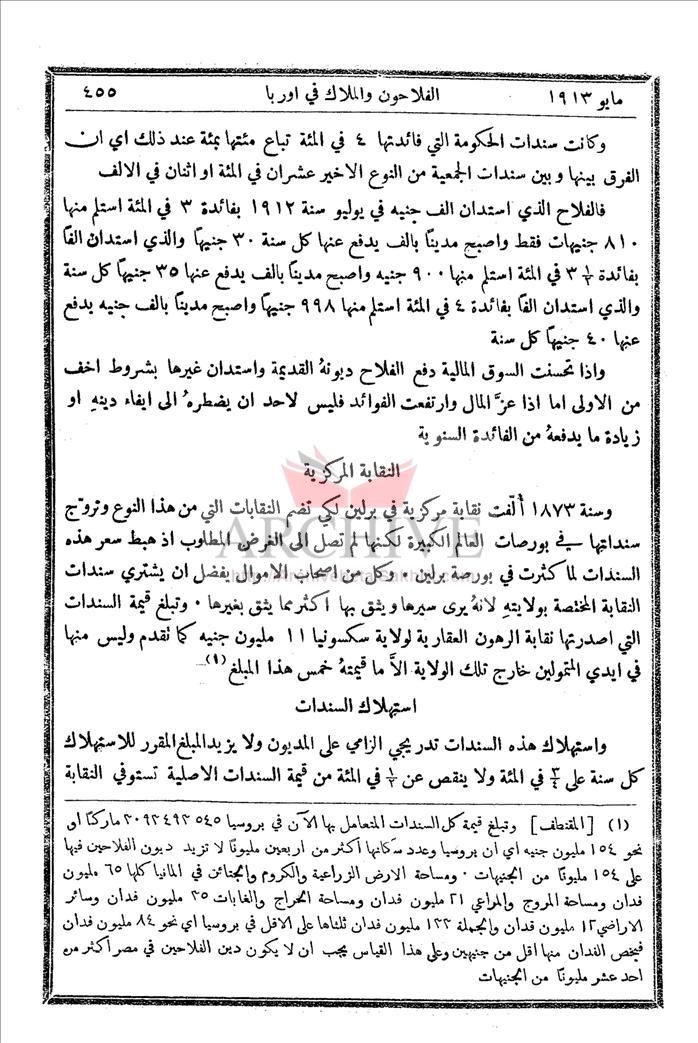 مايو ١٩١٣ الفلاحون والملاك في اوربا ٤٥٥
وكانت سندات الحكومة التي فائدتها ٤ في المئة تباع مئتها بمئة عند ذلك اي ان
الفرق بينها وبين سندات الجمعية من النوع الاخير عشران في المئة او اثنان في الالف
فالفلاح الذي استدان الف جنيه في يوليو سنة ١٩١٢ بفائدة ٣ في المئة استلم منها
٨١٠ جنيهات فقط واصبح مديناً بالف يدفع عنها كل سنة ٣٠ جنيهاً والذي استدان الفاً
بفائدة ٣ ١/٢ في المئة استلم منها ٩٠٠ جنيه واصبح مديناً بالف يدفع عنها ٣٥ جنيهاً كل سنة
والذي استدان الفاً بفائدة ٤ في المئة استلم منها ٩٩٨ جنيهاً واصبح مديناً بالف جنيه يدفع
عنها ٤٠ جنيهاً كل سنة
واذا تحسنت السوق المالية دفع الفلاح ديونهُ القديمة واستدان غيرها بشروط اخف
من الاولى اما اذا عزَّ المال وارتفعت الفوائد فليس لاحد ان يضطرهُ الى ايفاء دينهِ او
زيادة ما يدفعهُ من الفائدة السنوية
النقابة المركزية
وسنة ١٨٧٣ أُلّفت نقابة مركزية في برلين لكي تضم النقابات التي من هذا النوع وتروّج
سنداتها في بورصات العالم الكبيرة لكنها لم تصل الى الغرض المطلوب اذ هبط سعر هذه
السندات لما كثرت في بورصة برلين ٠ وكل من اصحاب الاموال يفضل ان يشتري سندات
النقابة المختصة بولايتهِ لانهُ يرى سيرها ويثق بها اكثر مما يثق بغيرها ٠ وتبلغ قيمة السندات
التي اصدرتها نقابة الرهون العقارية لولاية سكسونيا ١١ مليون جنيه كما تقدم وليس منها
في ايدي المتمولين خارج تلك الولاية الاَّ ما قيمتهُ خمس هذا المبلغ (١)
استهلاك السندات
واستهلاك هذه السندات تدريجي الزامي على المديون ولا يزيد المبلغ المقرر للاستهلاك
كل سنة على ٣/٤ في المئة ولا ينقص عن ١/٢ في المئة من قيمة السندات الاصلية تستوفي النقابة
(١) [المقتطف] وتبلغ قيمة كل السندات المتعامل بها الآن في بروسيا ٥٤٥ ٤٩٢ ٣٠٩٢ ماركاً او
نحو ١٥٤ مليون جنيه اي ان بروسيا وعدد سكانها أكثر من اربعين مليوناً لا تزيد ديون الفلاحين فيها
على ١٥٤ مليوناً من الجنيهات ٠ ومساحة الارض الزراعية والكروم والجنائن في المانيا كلها ٦٥ مليون
فدان ومساحة المروج والمراعي ٢١ مليون فدان ومساحة الحراج والغابات ٣٥ مليون فدان وسائر
الاراضي ١٢ مليون فدان والجملة ١٣٣ مليون فدان ثلثاها على الاقل في بروسيا اي نحو ٨٤ مليون فدان
فيخص الفدان منها أقل من جنيهين وعلى هذا القياس يجب ان لا يكون دين الفلاحين في مصر أكثر من
احد عشر مليوناً من الجنيهات
ARCHIVE